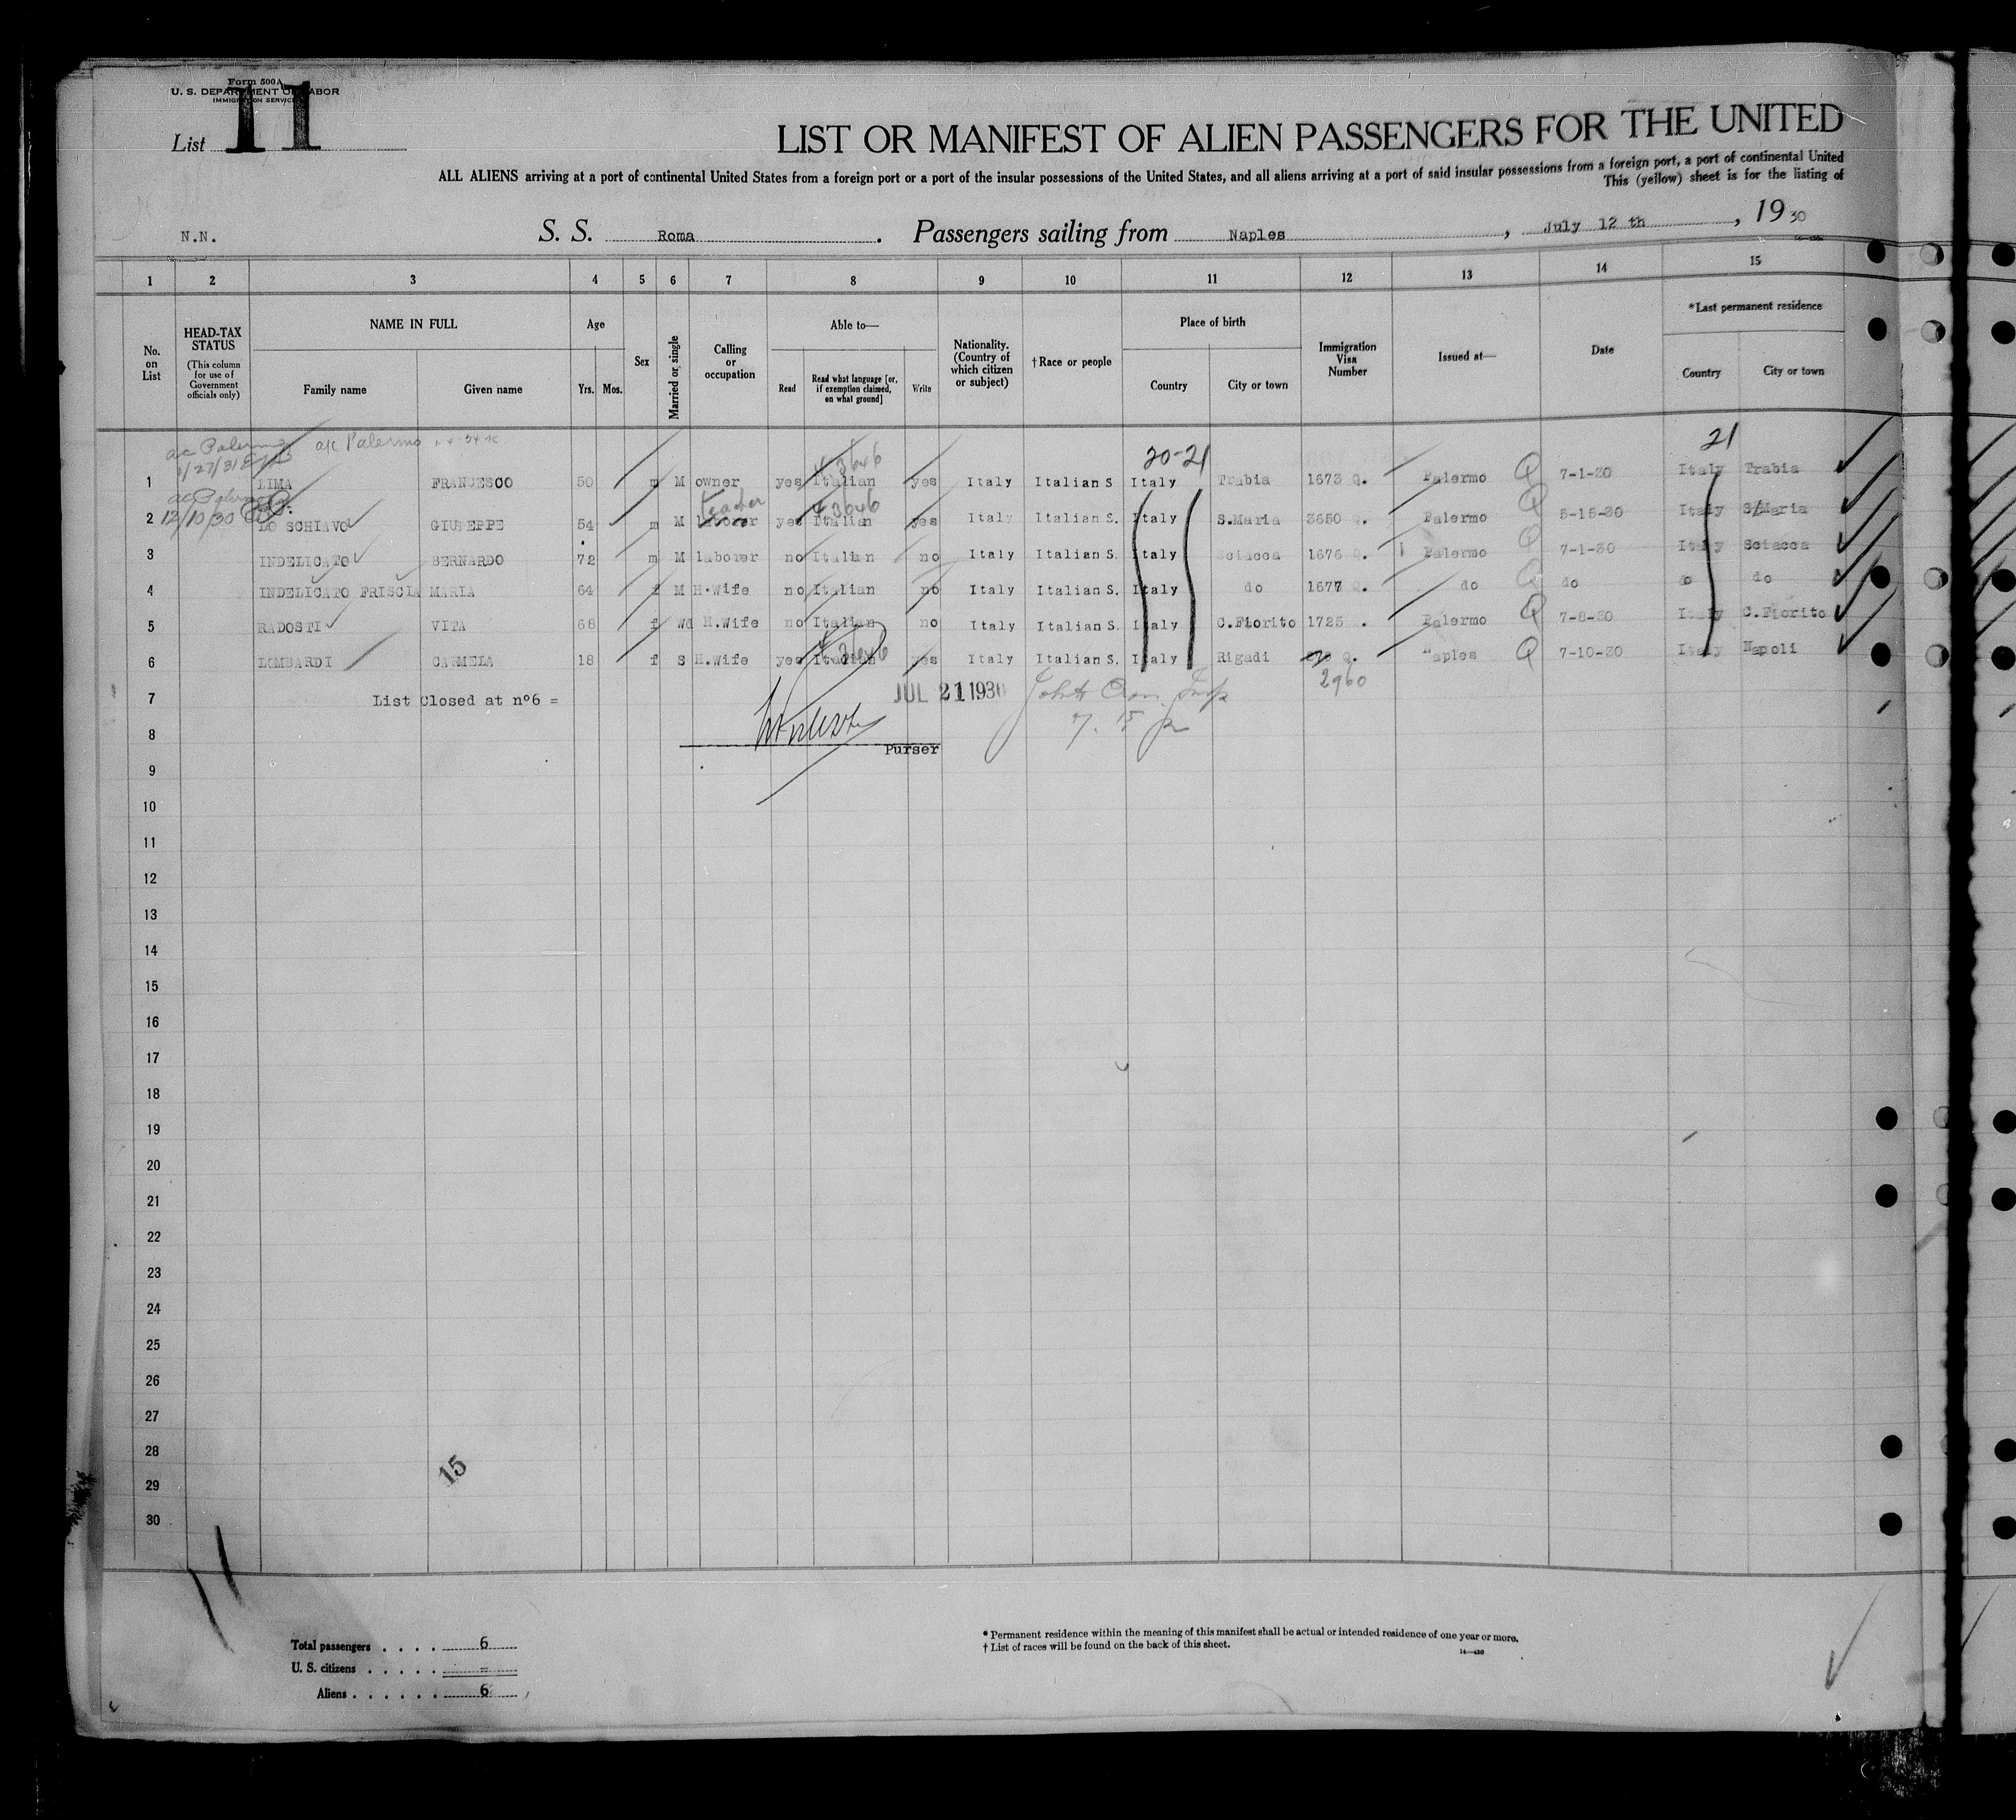 Form 500A
U. S. DEPARTMENT OF LABOR
IMMIGRATION SERVICE
List 11
LIST OR MANIFEST OF ALIEN PASSENGERS FOR THE UNITED
ALL ALIENS arriving at a port of continental United States from a foreign port or a port of the insular possessions of the United States, and all aliens arriving at a port of said insular possessions from a foreign port, a port of continental United
This (yellow) sheet is for the listing of
N.N. S. S. Roma. Passengers sailing from Naples, July 12 th, 1930
1 2 3 4 5 6 7 8 9 10 11 12 13 14 15
No. on List
HEAD-TAX STATUS (This column for use of Government officials only)
NAME IN FULL Family name Given name
Age Yrs. Mos.
Sex
Married or single
Calling or occupation
Able to— Read Read what language [or, if exemption claimed, on what ground] Write
Nationality. (Country of which citizen or subject)
†Race or people
Place of birth Country City or town
Immigration Visa Number
Issued at—
Date
*Last permanent residence Country City or town
a/c Palermo a/c Palermo
1/27/31 43646 20-21 21
1 LIMA FRANCESCO 50 m M owner yes Italian yes Italy Italian S Italy Trabia 1673 Q. Palermo Q 7-1-30 Italy Trabia
12/10/30 43646
2 LO SCHIAVO GIUSEPPE 54 m M laborer yes Italian yes Italy Italian S. Italy S.Maria 3650 Q. Palermo Q 5-15-30 Italy S.Maria
3 INDELICATO BERNARDO 72 m M laborer no Italian no Italy Italian S. Italy Sciacca 1676 Q. Palermo Q 7-1-30 Italy Sciacca
4 INDELICATO FRISCIA MARIA 64 f M H.Wife no Italian no Italy Italian S. Italy do 1677 Q. do Q do do do
5 RADOSTI VITA 68 f Wd H.Wife no Italian no Italy Italian S. Italy C.Fiorito 1725 Palermo Q 7-8-30 Italy C.Fiorito
6 LOMBARDI CARMELA 18 f S H.Wife yes Italian yes Italy Italian S. Italy Rigadi Q. Naples Q 7-10-30 Italy Napoli
43646 2960
7 List Closed at nº6 = JUL 21 1930
8 Purser
9
10
11
12
13
14
15
16
17
18
19
20
21
22
23
24
25
26
27
28
29 15
30
Total passengers . . . . 6
U. S. citizens . . . . . =
Aliens . . . . . . 6
* Permanent residence within the meaning of this manifest shall be actual or intended residence of one year or more.
† List of races will be found on the back of this sheet.